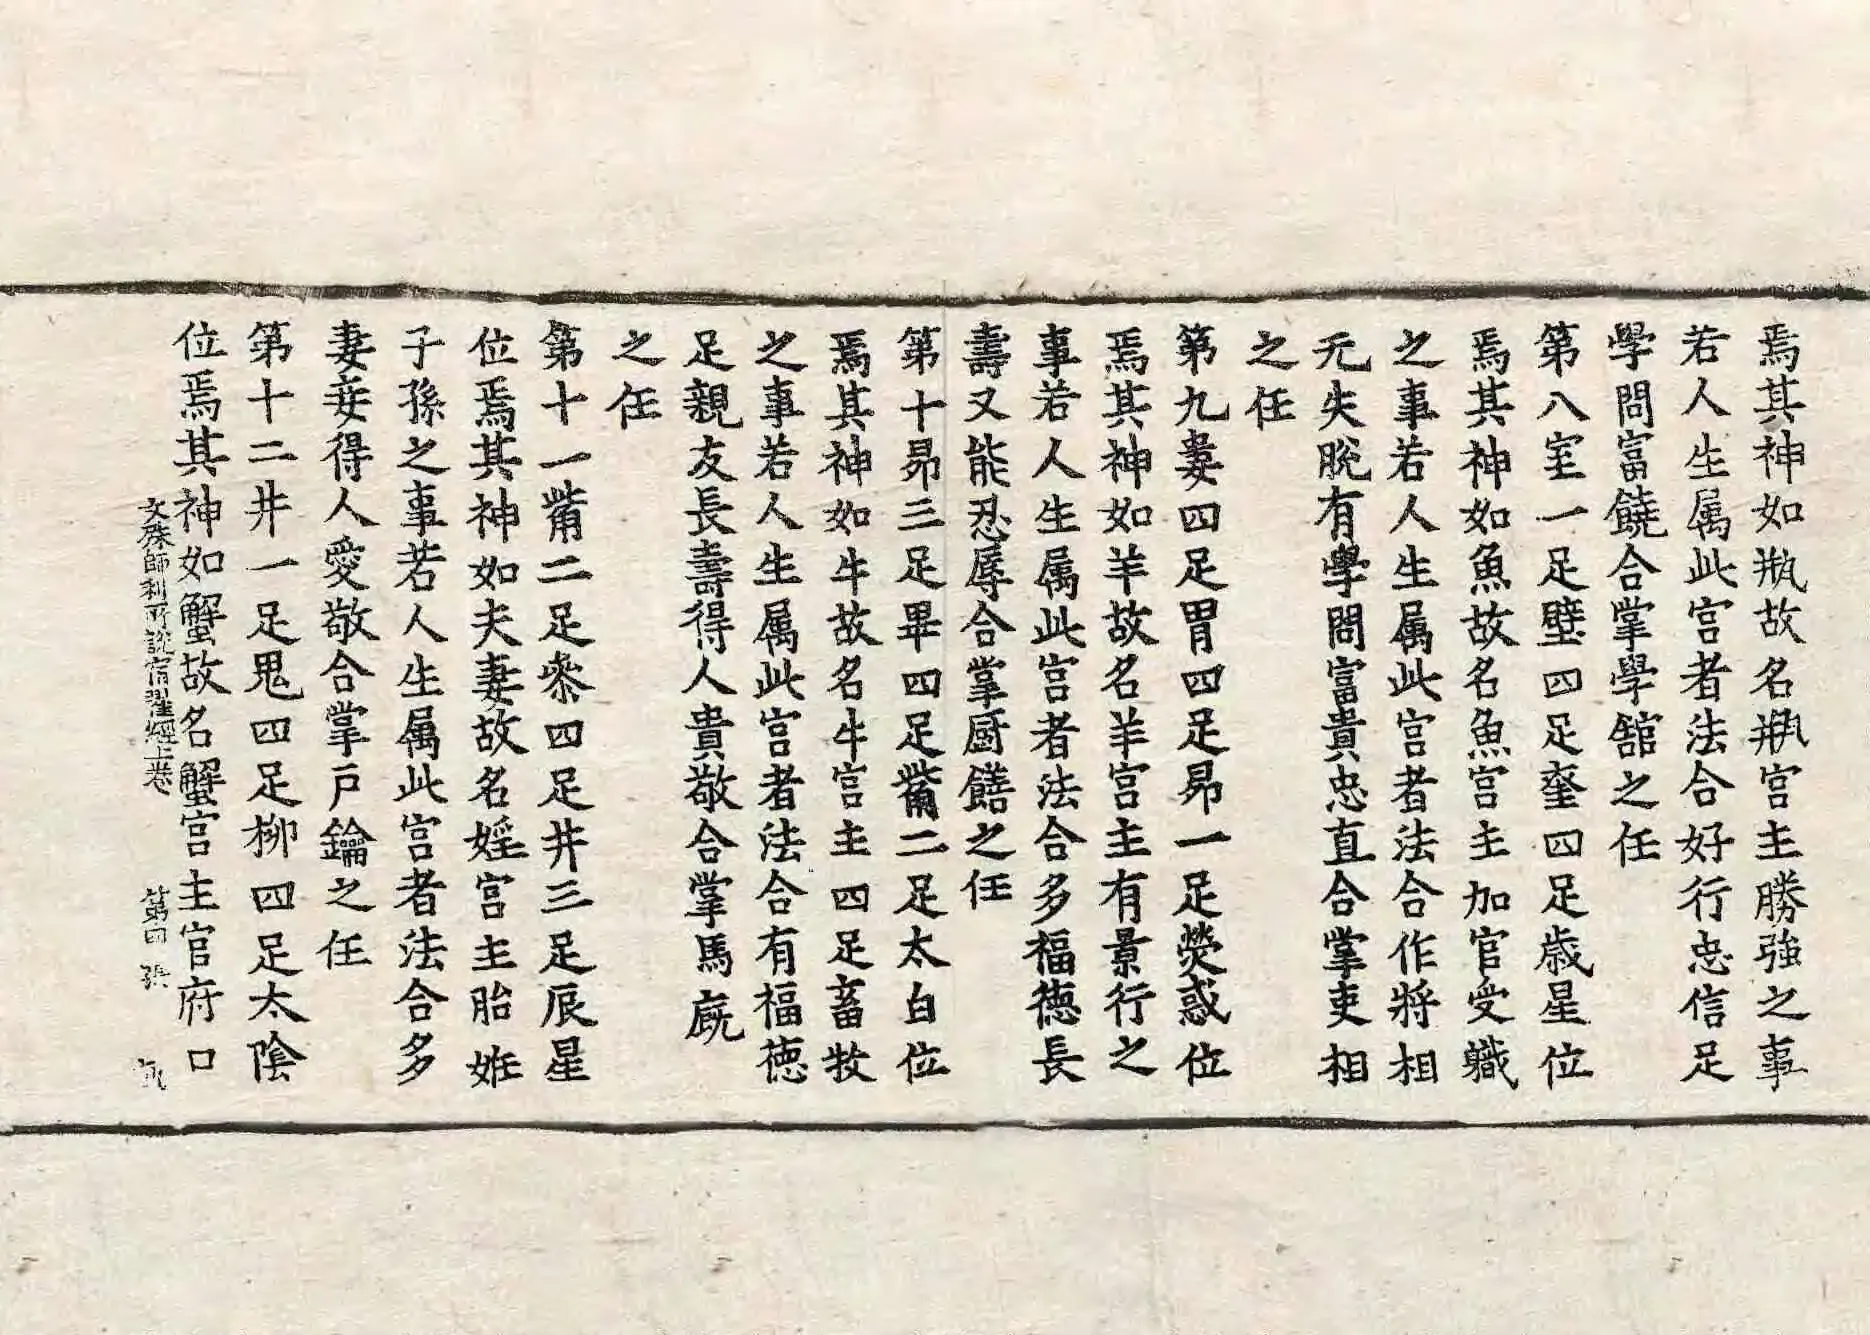 焉其神如瓶故名瓶宫主勝強之事
若人生属此宫者法合好行忠信足
學問富饒合掌學館之任
第八室一足壁四足奎四足歲星位
焉其神如魚故名魚宫主加官受軄
之事若人生属此宫者法合作将相
无失脱有學問富貴忠直合掌吏相
之任
第九婁四足胃四足昴一足熒惑位
焉其神如羊故名羊宫主有景行之
事若人生属此宫者法合多福德長
壽又能忍辱合掌厨饍之任
第十昴三足畢四足觜二足太白位
焉其神如牛故名牛宫主四足畜牧
之事若人生属此宫者法合有福德
足親友長壽得人貴敬合掌馬廐
之任
第十一觜二足参四足井三足辰星
位焉其神如夫妻故名婬宫主胎妊
子孫之事若人生属此宫者法合多
妻妾得人愛敬合掌戸鑰之任
第十二井一足鬼四足栁四足太陰
位焉其神如蟹故名蟹宫主官府口
文殊師利所説宿曜經上卷 第四張